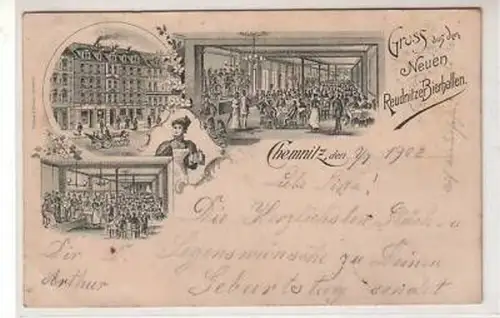 Gruss aus den
Neuen
Reudnitzer Bierhallen.
Chemnitz, den 9/7 1902
Liebe
Die Herzlichsten Glück- u
Segenswünsche zu Deinem
Geburtstag sendet
Dir
Arthur